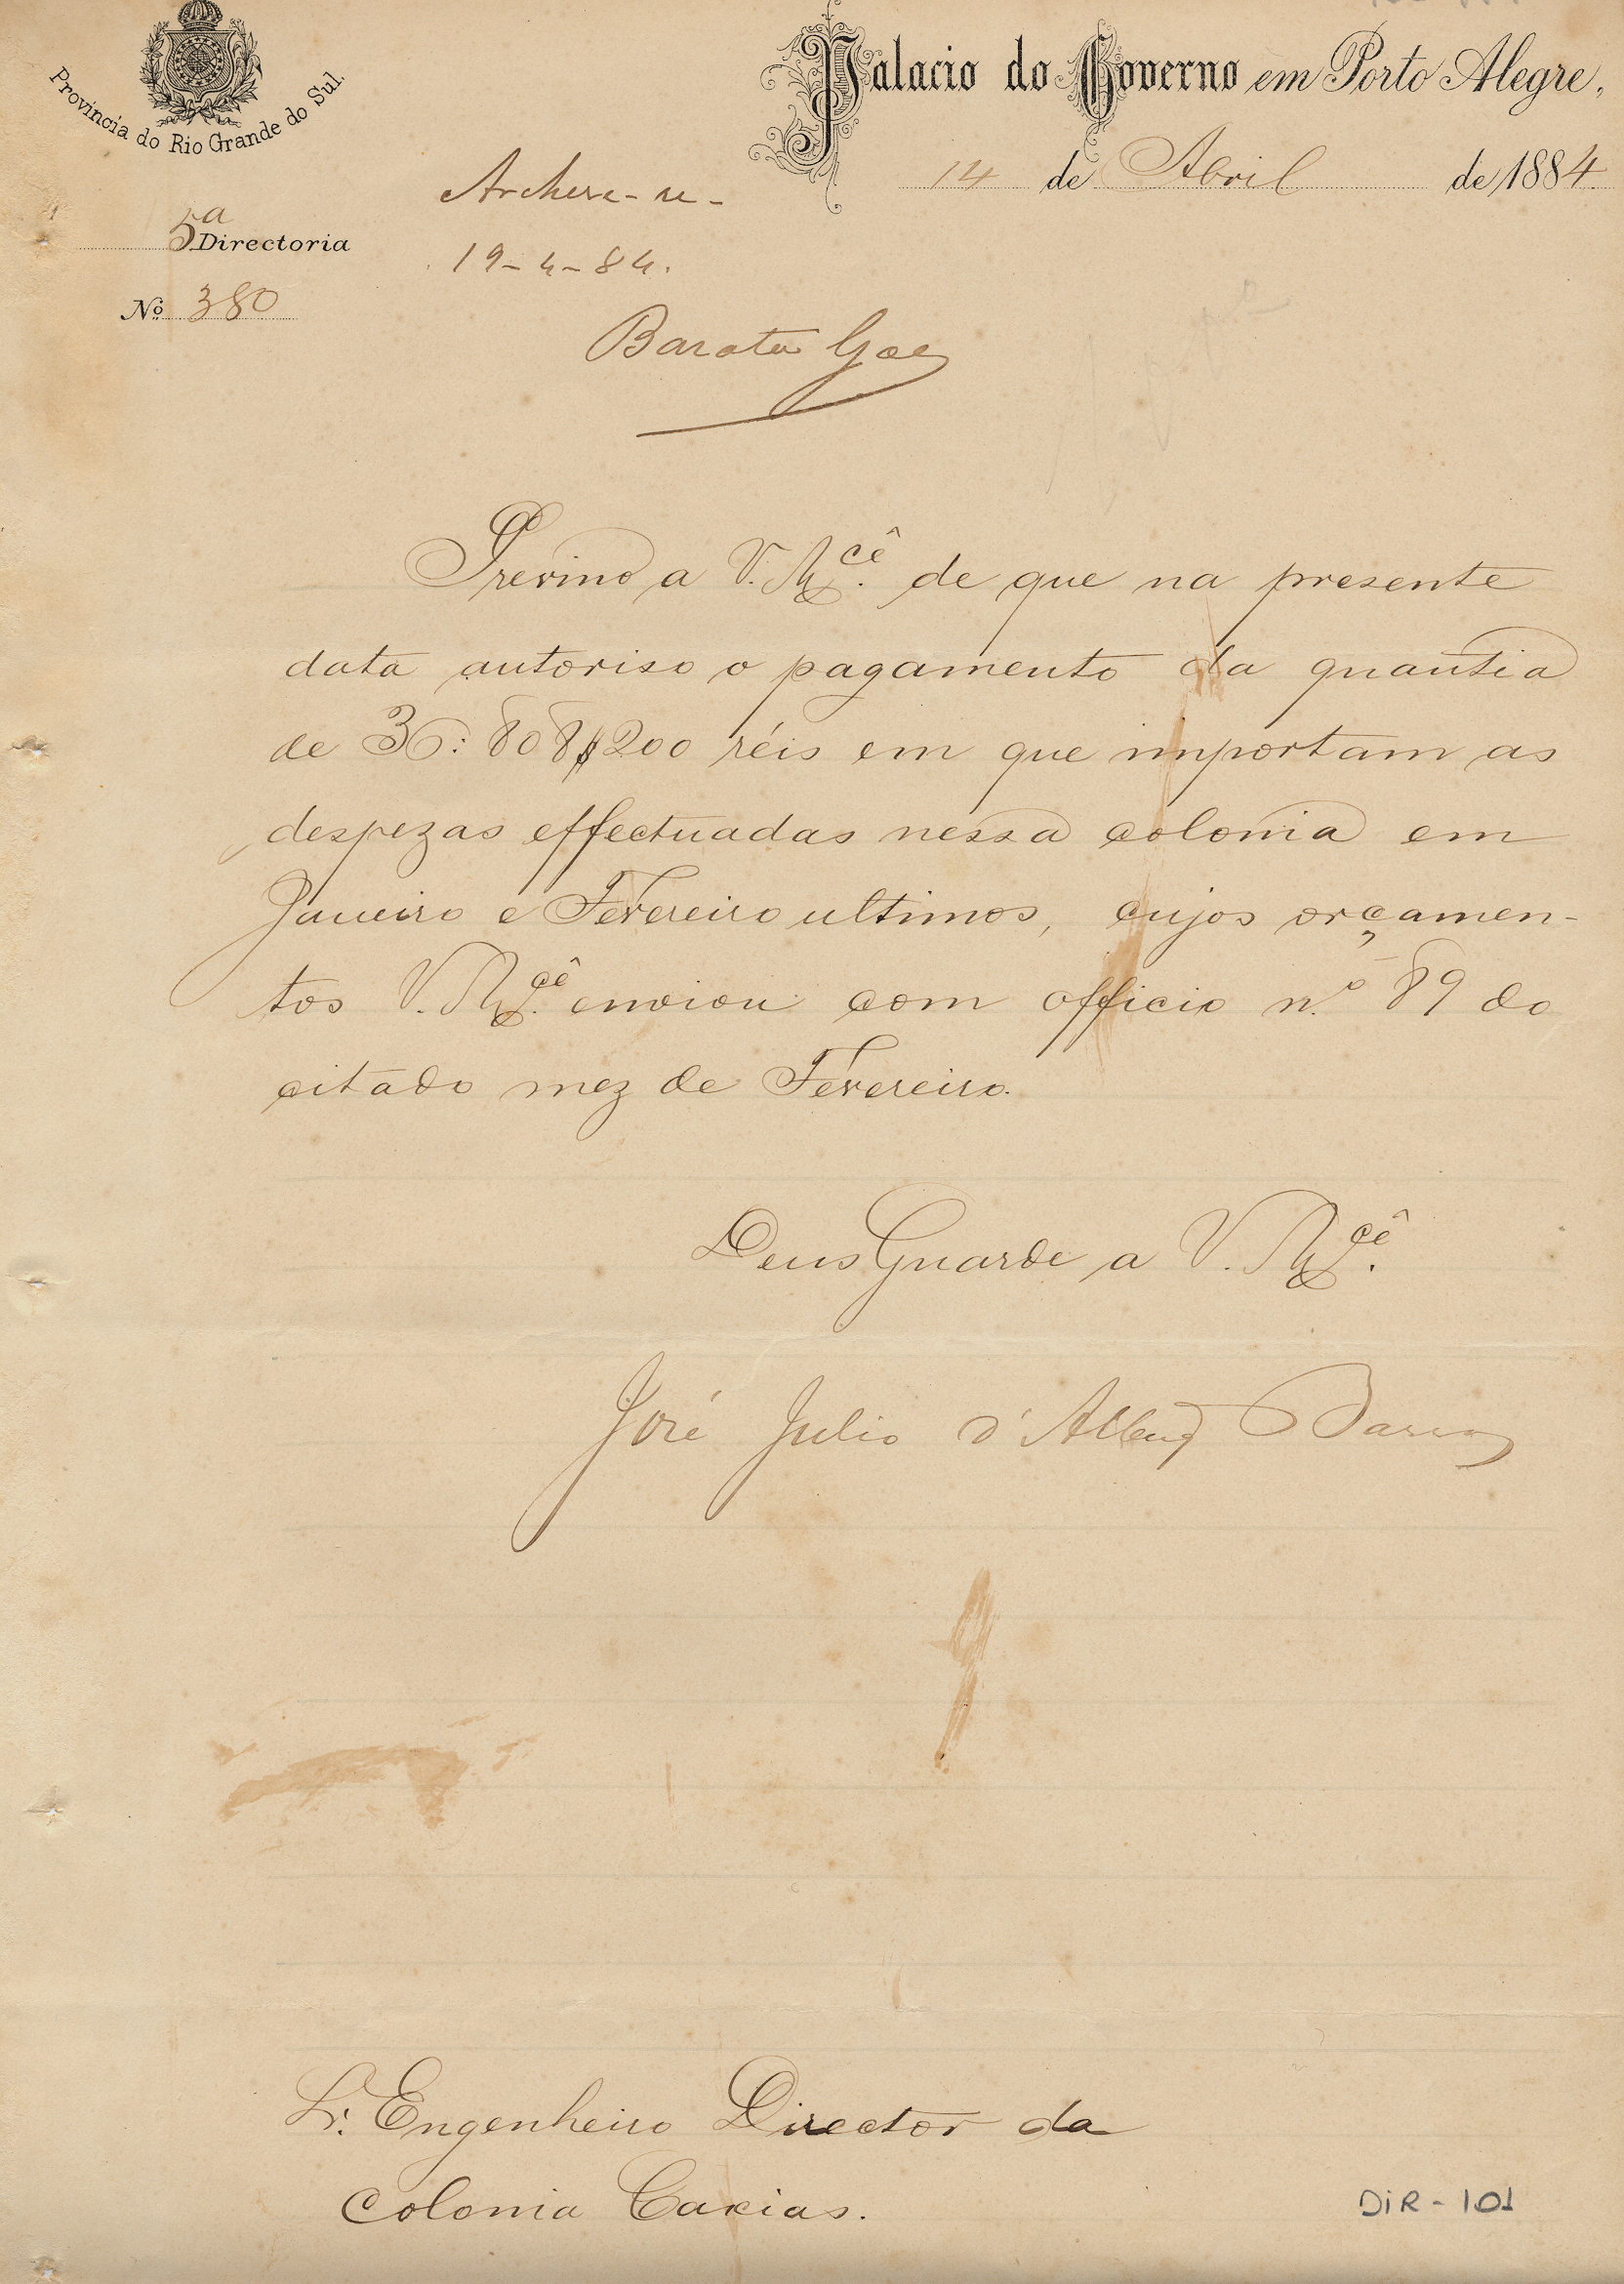 Provincia do Rio Grande do Sul.
Palacio do Governo em Porto Alegre,
14 de Abril de 1884.
5ª Directoria
Nº 380
Archive-se-
19-4-84.
Barata Góes
Previno a V. Mcê. de que na presente
data autoriso o pagamento da quantia
de 36:808$200 réis em que importam as
despezas effectuadas nessa colonia em
Janeiro e Fevereiro ultimos, cujos orçamen-
tos V. Mcê. enviou com officio n.º 89 do
citado mez de Fevereiro.
Deus Guarde a V. Mcê.
José Julio d'Albuq Barros
Sr. Engenheiro Director da
Colonia Caxias.
DIR-101